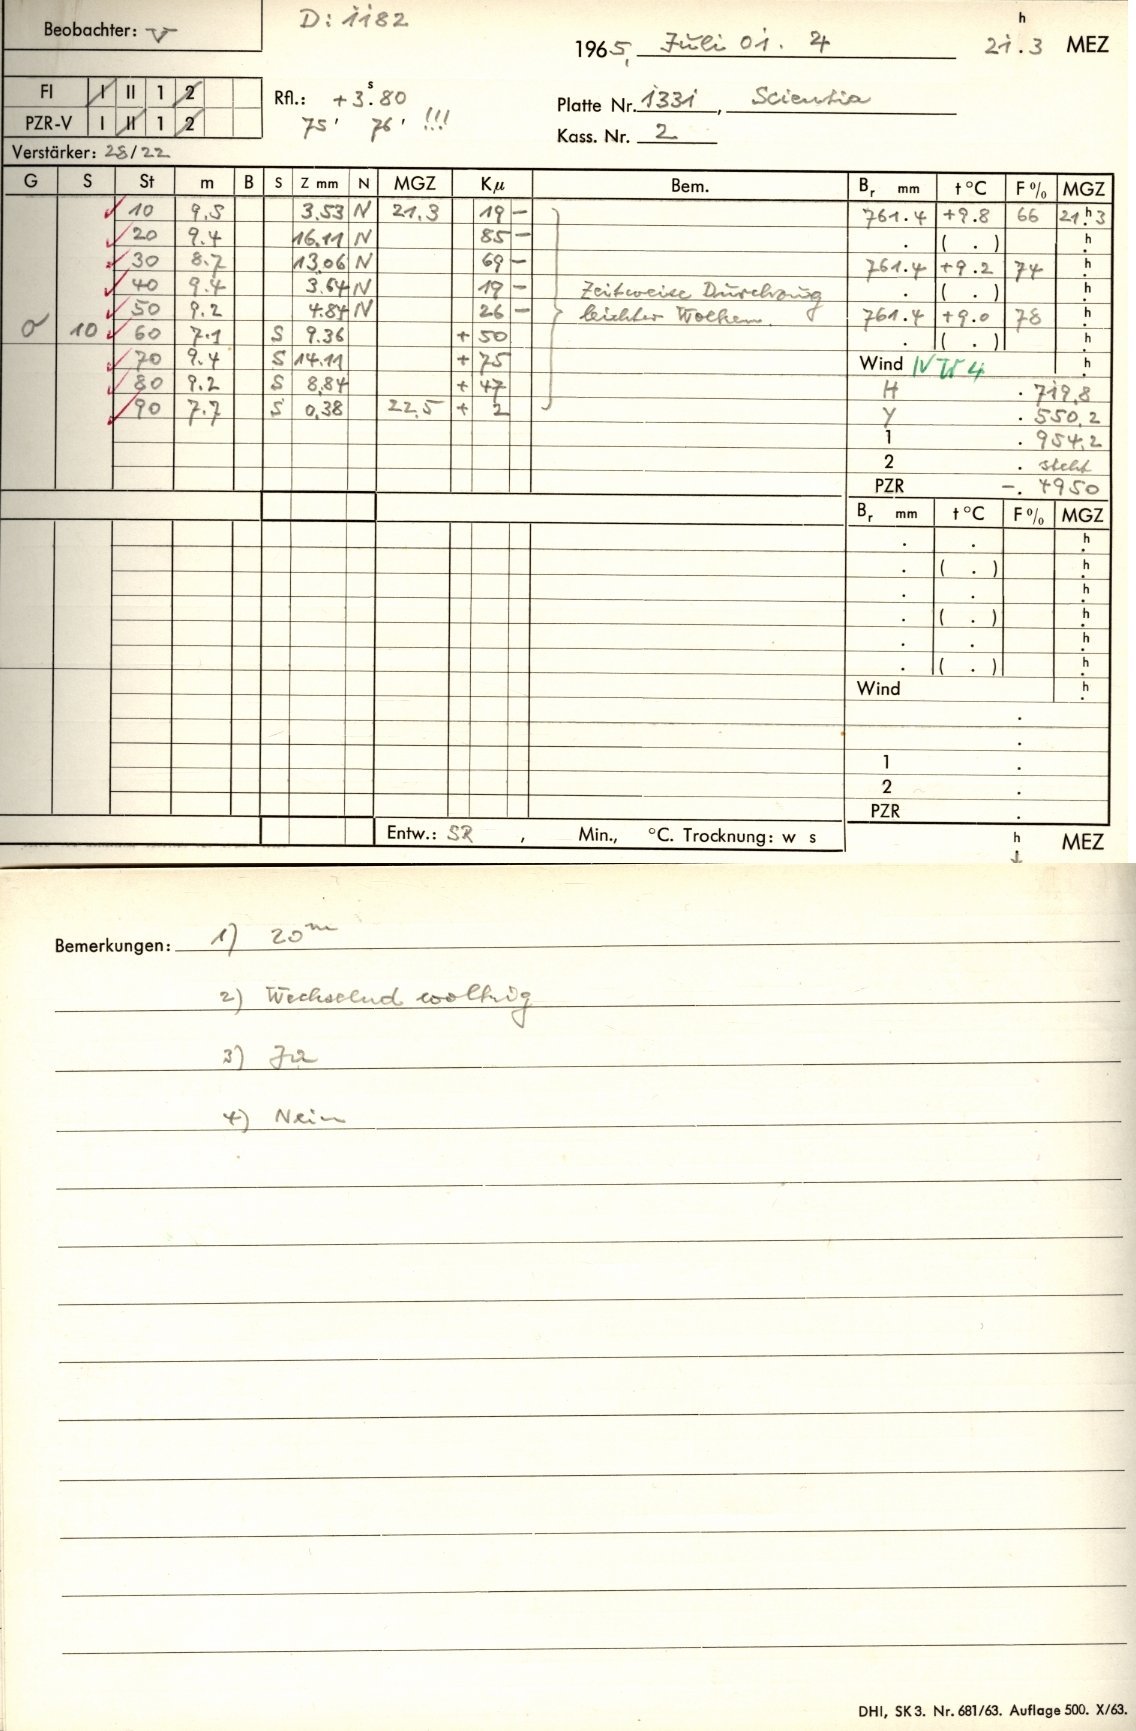 Beobachter: V
D: 1182
1965, Juli 01. 4
21.3 h MEZ
FI I II 1 2
PZR-V I II 1 2
Rfl.: +3.80 s
75' 76' !!!
Platte Nr. 1331, Scientia
Kass. Nr. 2
Verstärker: 28/22
G S St m B S Z mm N MGZ Kμ Bem. Br mm t °C F % MGZ
10 9.5 3.53 N 21.3 19 – 761.4 +9.8 66 21 h 3
20 9.4 16.11 N 85 – . ( . ) h
30 8.7 13.06 N 69 – 761.4 +9.2 74 h
40 9.4 3.64 N 19 – Zeitweise Durchzug . ( . ) h
50 9.2 4.84 N 26 – leichter Wolken. 761.4 +9.0 78 h
σ 10 60 7.1 S 9.36 + 50 . ( . ) h
70 9.4 S 14.11 + 75 Wind NW 4 h
80 9.2 S 8,84 + 47 H . 719,8
90 7.7 S 0,38 22,5 + 2 Y . 550,2
1 . 954,2
2 . steht
PZR –. 4950
Br mm t °C F % MGZ
. . h
. ( . ) h
. . h
. ( . ) h
. . h
. ( . ) h
Wind h
.
.
1 .
2 .
PZR .
Entw.: SR , Min., °C. Trocknung: w s
h MEZ
Bemerkungen: 1) 20 m
2) Wechselnd wolkig
3) Ja
4) Nein
DHI, SK 3. Nr. 681/63. Auflage 500. X/63.